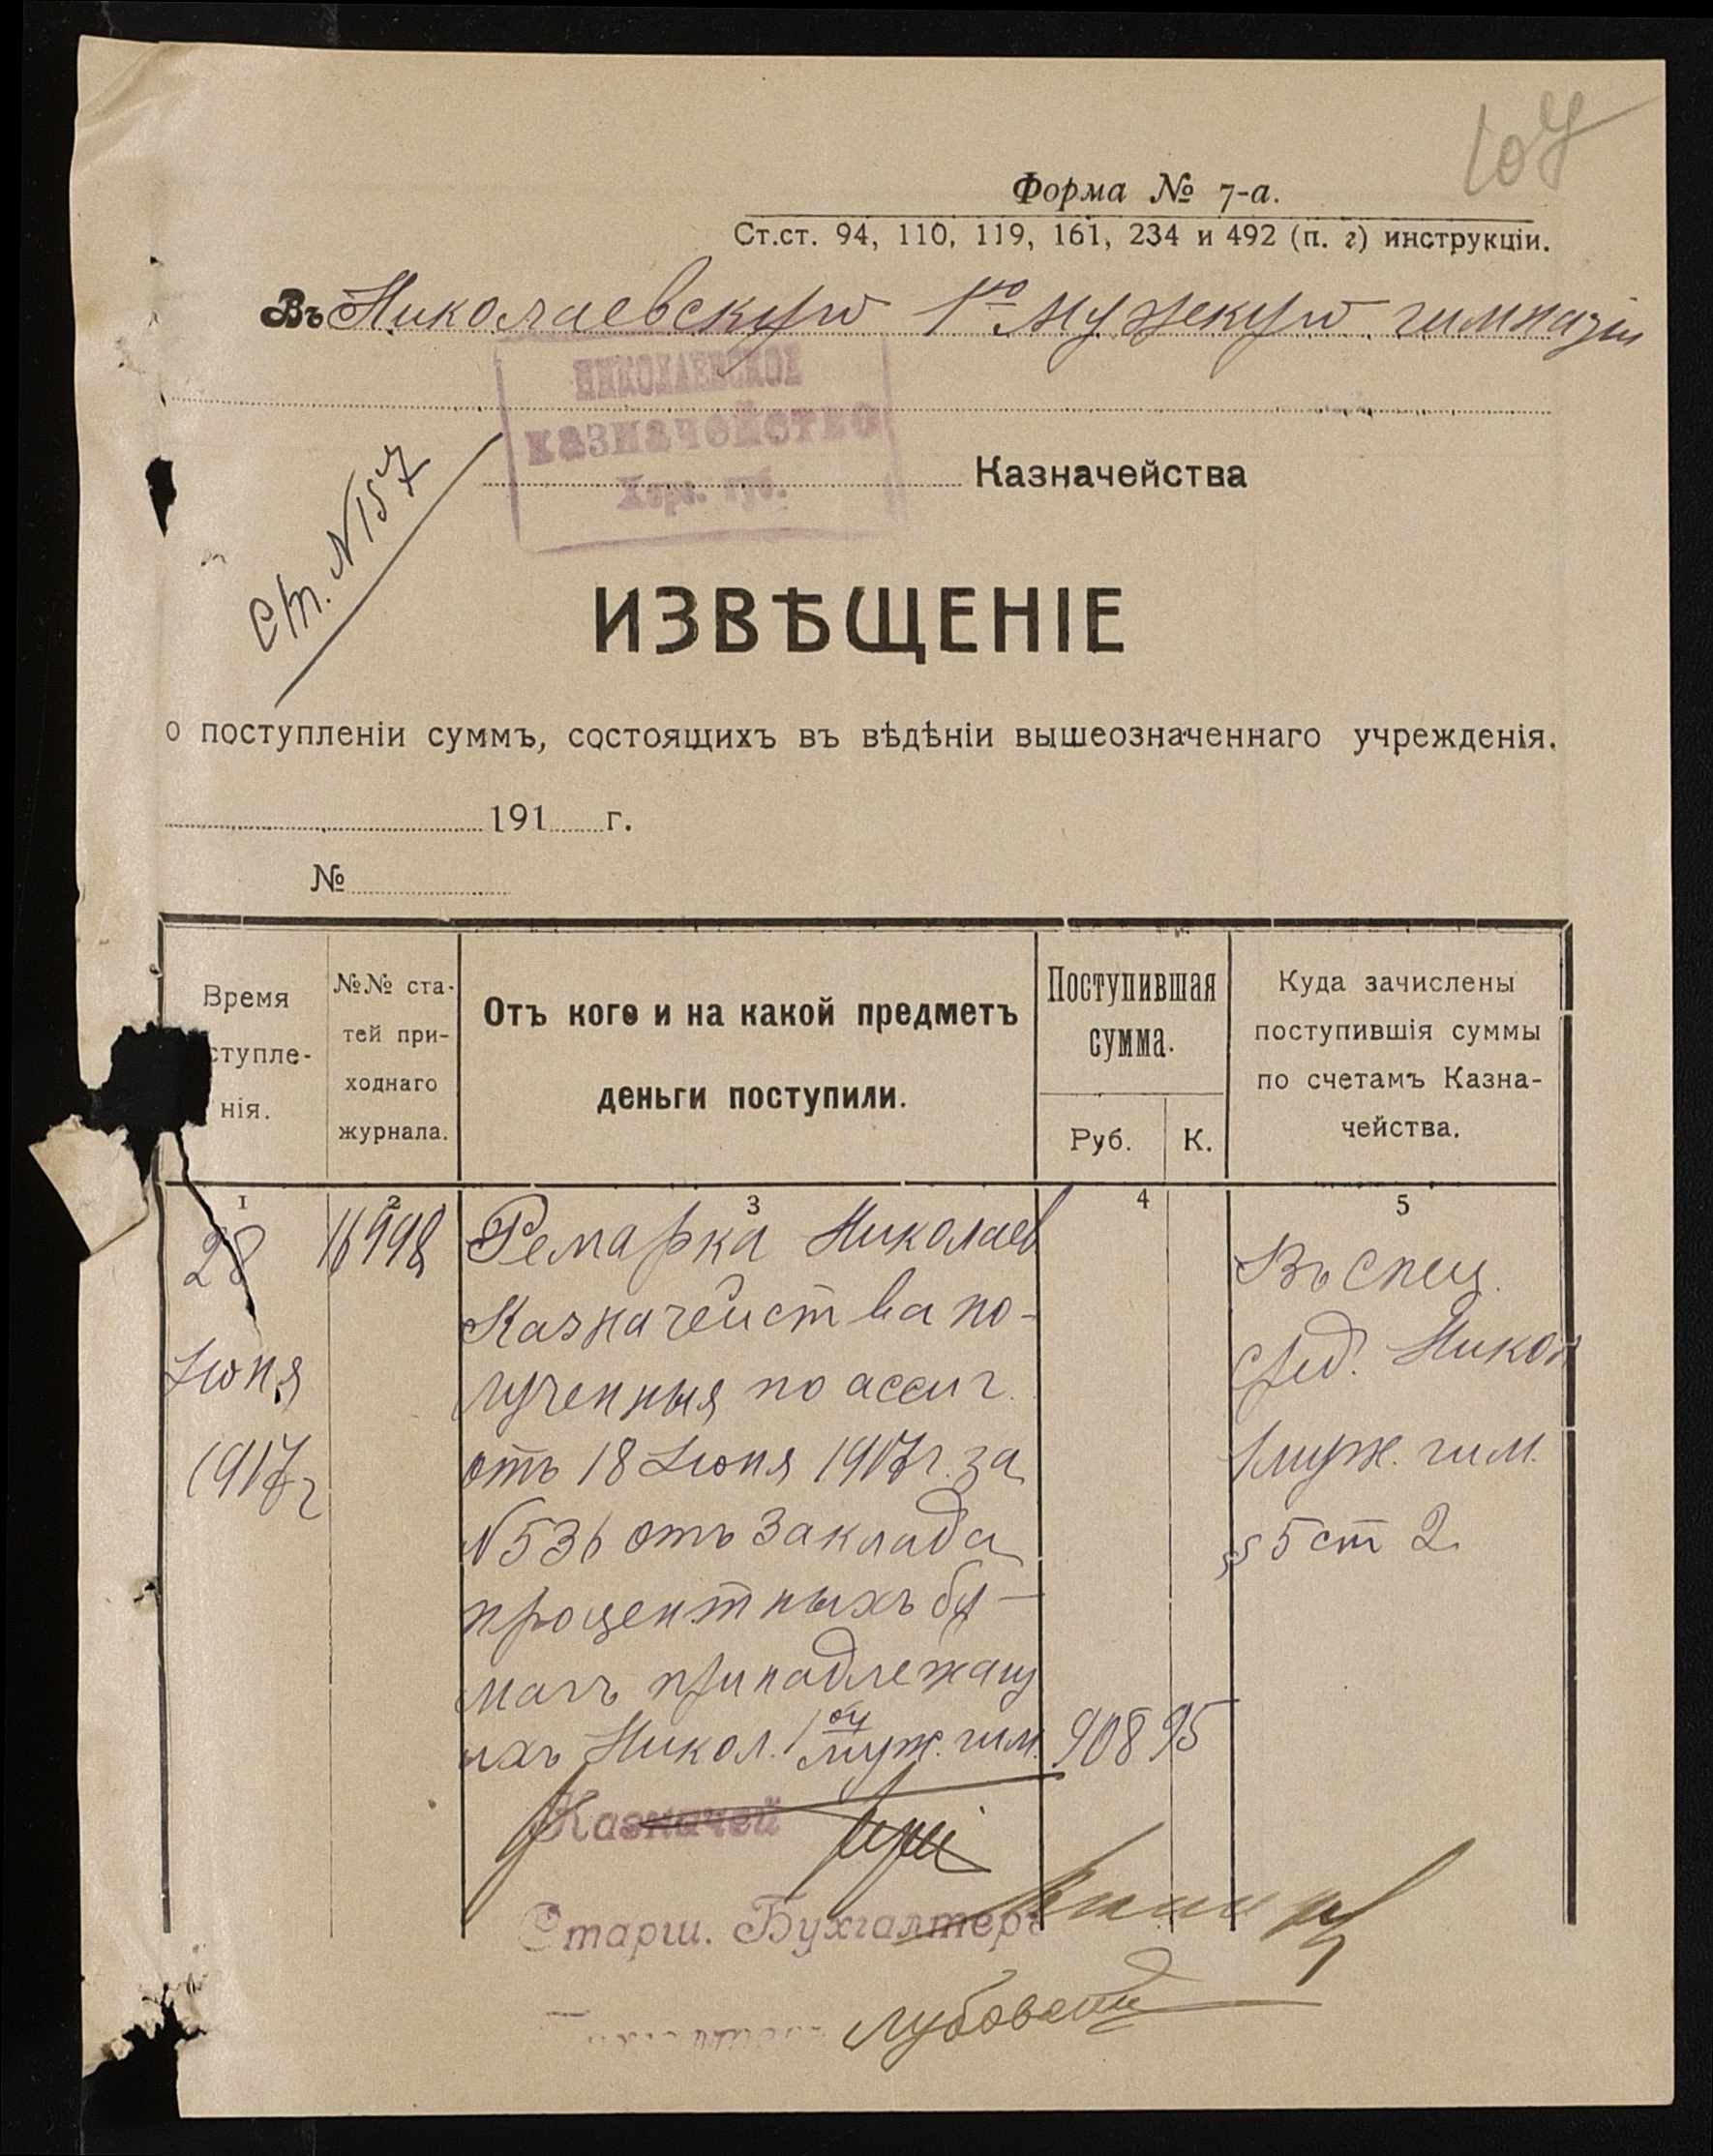 107
Форма № 7-а.
Ст.ст. 94, 110, 119, 161, 234 и 492 (п. г) инструкціи.
Въ Николаевскую 1ую мужскую гимназію
НИКОЛАЕВСКОЕ
КАЗНАЧЕЙСТВО
Херс. губ.
Казначейства
Ст. N 157
ИЗВѢЩЕНІЕ
о поступленіи суммъ, состоящихъ въ вѣдѣніи вышеозначеннаго учрежденія.
191 г.
№
Время
ступле-
нія.
№№ ста-
тей при-
ходнаго
журнала.
Отъ кого и на какой предметъ
деньги поступили.
Поступившая
сумма.
Руб. К.
Куда зачислены
поступившія суммы
по счетамъ Казна-
чейства.
1 2 3 4 5
28
Іюня
1917 г
16998
Ремарка Николаев
Казначейства по-
лученныя по ассиг.
отъ 18 Іюня 1917 г. за
N 536 отъ заклада
процентныхъ бу-
магъ принадлежащ
ихъ Никол. 1ой муж. гим. 908 95
Въ спец.
сред. Никол
1 муж. гим.
§ 5 ст 2
Казначей
Старш. Бухгалтеръ